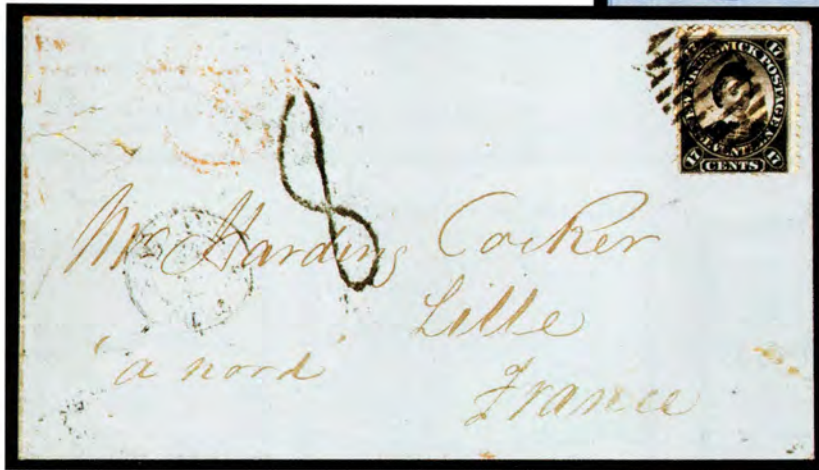 17 17
NEW BRUNSWICK POSTAGE
17 CENTS 17
8
Mrs Harding Cocker
Lille
'a nord'
France